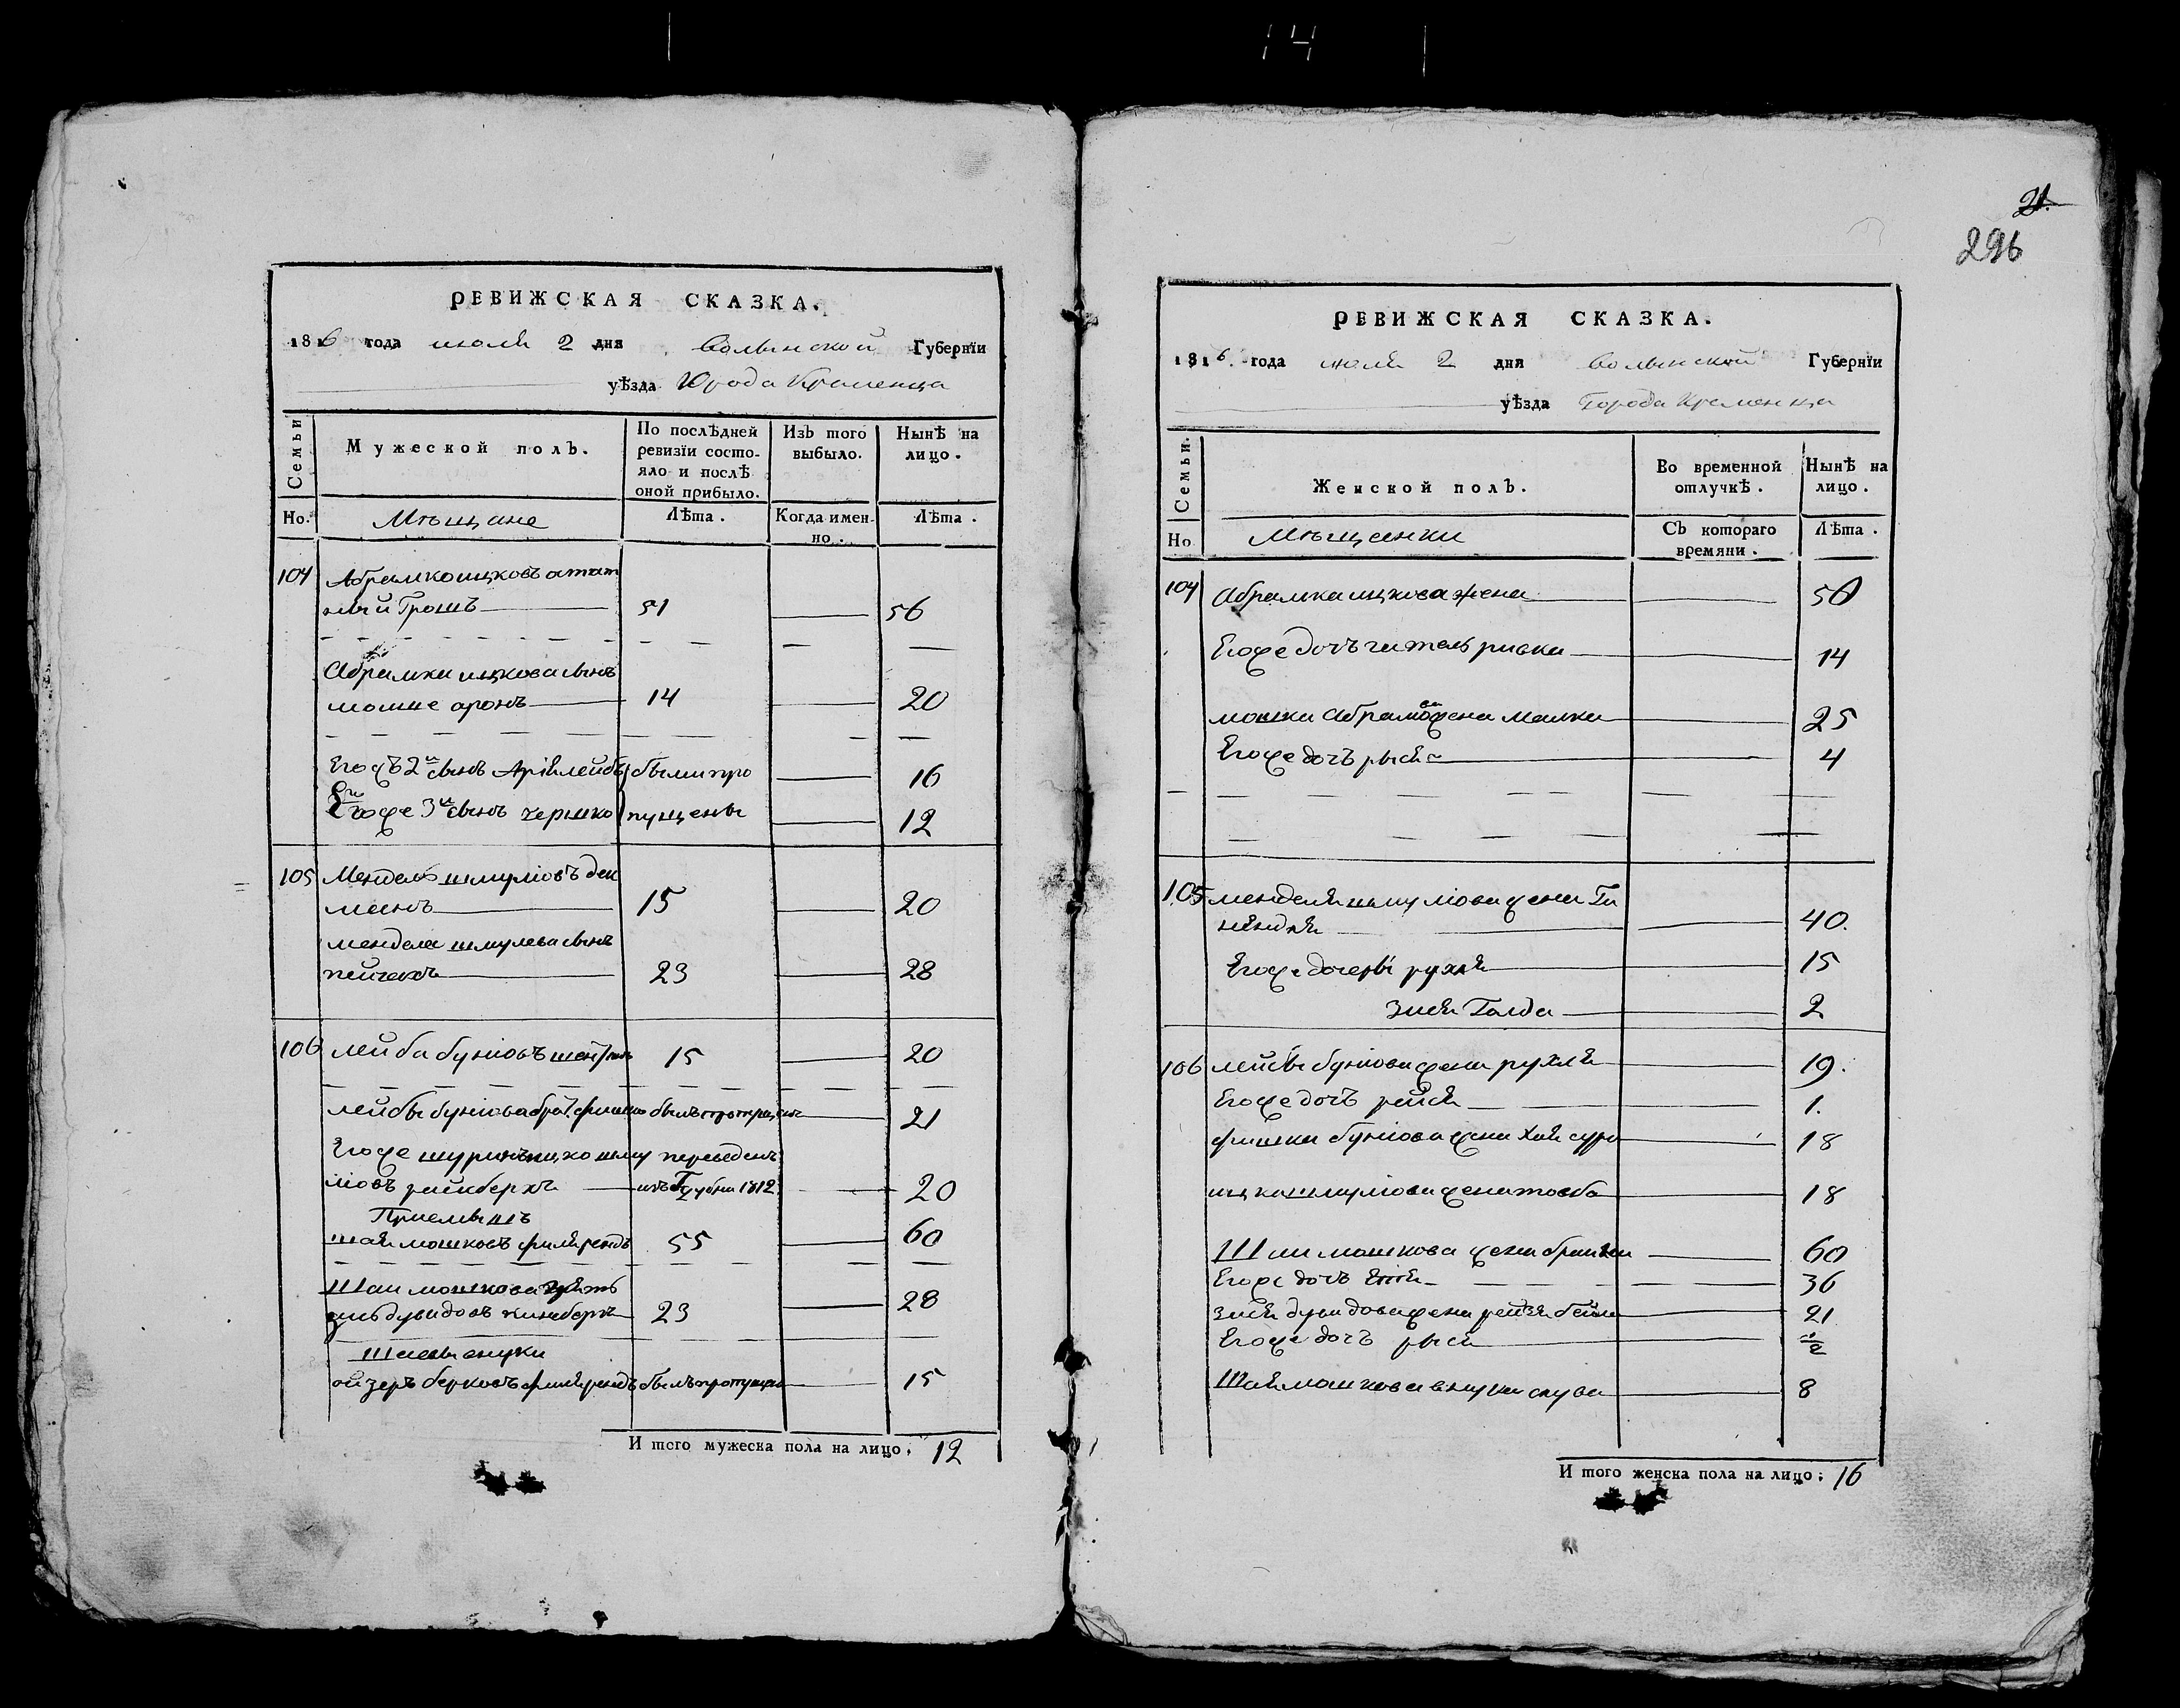 14
21.
296
РЕВИЖСКАЯ СКАЗКА.
1816 года июля 2 дня Волынской Губернїи
уѣзда Города Кременца
Семьи
Мужеской полъ.
По послѣдней ревизїи состояло и послѣ оной прибыло.
Изъ того выбыло.
Нынѣ на лицо.
Но.
Мѣщане
Лѣта.
Когда именно.
Лѣта.
104 Абрамко ицковъ
Грошъ 51 56
Абрамки ицкова сынъ
мошке аронъ 14 20
Егожъ 2й сынъ Арія лейбъ были про 16
Егоже 3й сынъ гершко пущены 12
105 Мендель шмуліовъ
15 20
менделя шмулева сынъ
23 28
106 лейба буніовъ 15 20
лейбы буніова братъ фишко былъ пропущенъ 21
Егоже шуринъ ицко шму переведенъ
ліовъ изъ 1812 20
Приемышъ
шая мошковъ 55 60
Шаи мошкова зять
дувидовъ 23 28
Шаевы внуки
ойзеръ берковъ былъ пропущенъ 15
И того мужеска пола на лицо, 12
РЕВИЖСКАЯ СКАЗКА.
1816. года июля 2 дня Волынской Губернїи
уѣзда Города Кременца
Семьи.
Женской полъ.
Во временной отлучкѣ.
Нынѣ на лицо.
Но
Мѣщанки
Съ котораго времяни.
Лѣта.
104 Абрамка ицкова жена 50
Егоже дочъ гитель ривка 14
мошки Абрамова жена малка 25
Егоже дочъ рыся 4
105 менделя шмуліова жена Ги
нендля 40.
Егоже дочеры рухля 15
Голда 2
106 лейбы буніова жена рухля 19.
Егоже дочъ рейся 1.
фишки буніова жена хая сура 18
ицка шмуліова жена товба 18
Шаи мошкова жена 60
Егоже дочъ 36
дувидова жена рейзя бейла 21
Егоже дочъ рыся 1/2
Шая мошкова внука 8
И того женска пола на лицо; 16